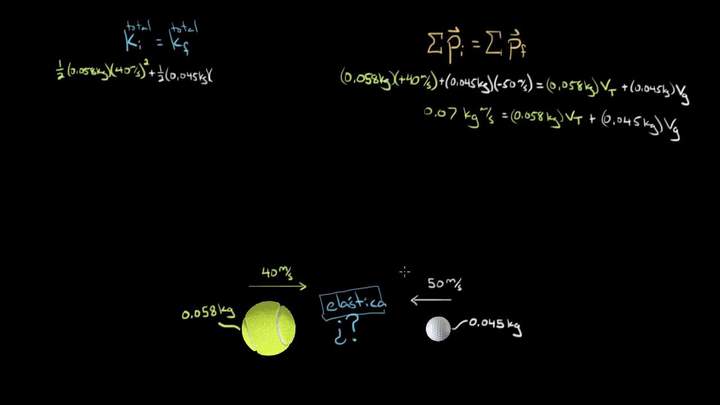 total total
Ki = Kf
½(0.058kg)(40m/s)² + ½(0.045kg)(
Σp⃗i = Σp⃗f
(0.058kg)(+40m/s) + (0.045kg)(-50m/s) = (0.058kg)VT + (0.045kg)Vg
0.07 kg m/s = (0.058kg)VT + (0.045kg)Vg
40m/s
50m/s
0.058kg
elástica
¿?
0.045kg